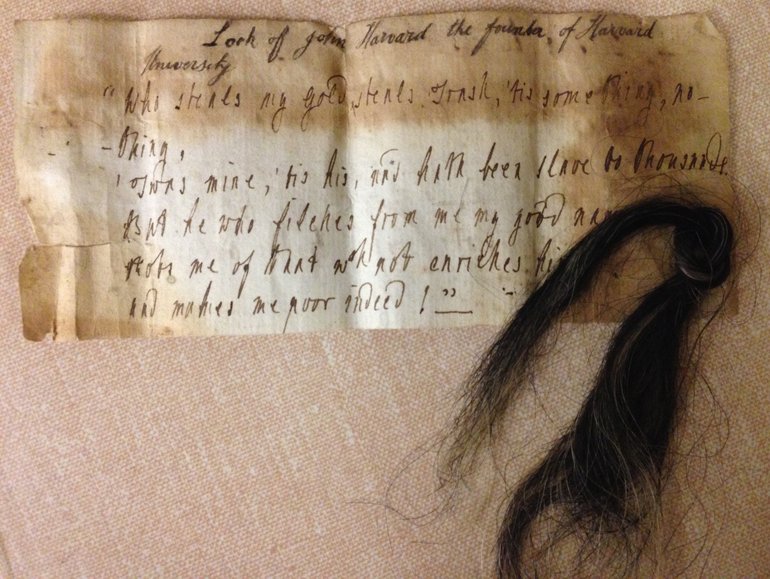 Lock of John Harvard the founder of Harvard
University
"Who steals my gold steals Trash, 'tis some thing, no-
-thing,
'Twas mine, 'tis his, and hath been slave to thousands.
But he who filches from me my good
robs me of that wch not enriches
and makes me poor indeed!"